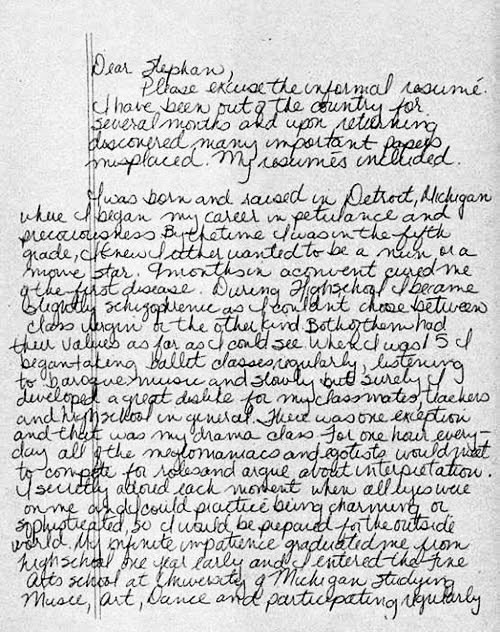 Dear Stephan,
Please excuse the informal resumé.
I have been out of the country for
several months and upon returning
discovered many important papers
misplaced. My resumés included.
I was born and raised in Detroit, Michigan
where I began my career in petulance and
precociousness. By the time I was in the fifth
grade, I knew I either wanted to be a nun or a
movie star. 9 months in a convent cured me
of the first disease. During High school I became
slightly schizophrenic as I couldn't choose between
class virgin or the other kind. Both of them had
their values as far as I could see. When I was 15 I
began taking ballet classes regularly, listening
to baroque music and slowly but surely I
developed a great dislike for my classmates, teachers
and high school in general. There was one exception
and that was my drama class. For one hour every-
day all of the meglomaniacs and egotists would meet
to compete for roles and argue about interpretation.
I secretly adored each moment when all eyes were
on me and I could practice being charming or
sophisticated, so I would be prepared for the outside
world. My infinite impatience graduated me from
high school one year early and I entered the Fine
Arts school at University of Michigan studying
Music, Art, Dance and participating regularly